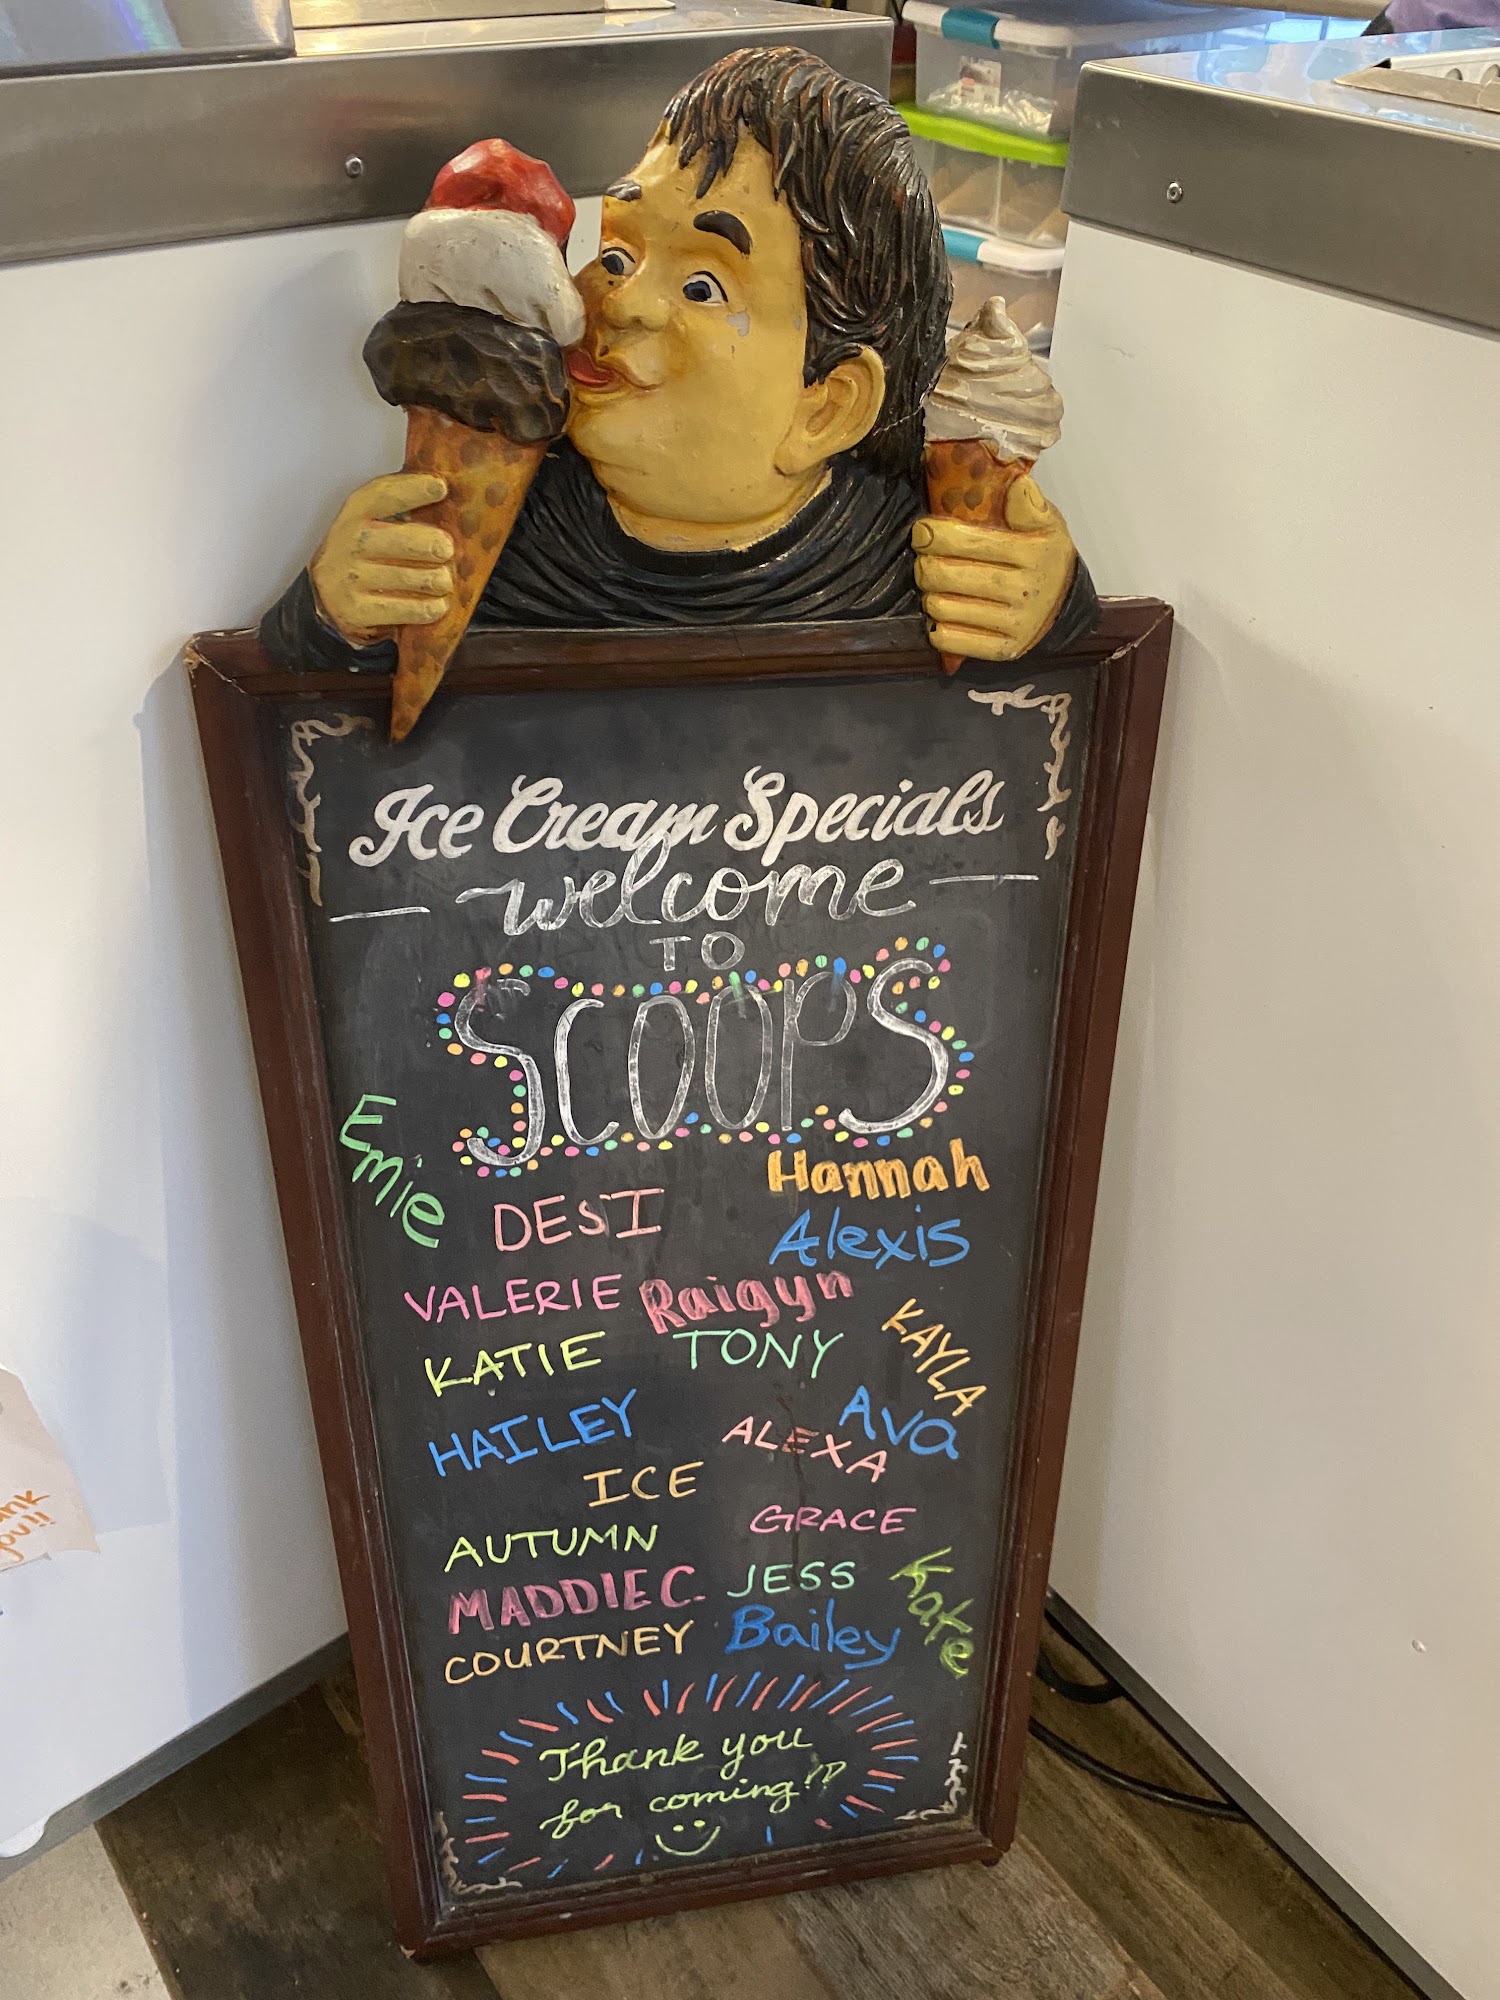 Ice Cream Specials
welcome
TO
SCOOPS
Emie
Hannah
DESI
Alexis
VALERIE Raigyn
KATIE TONY
KAYLA
HAILEY
Ava
ALEXA
ICE
GRACE
AUTUMN
MADDIE C.
JESS
Kate
COURTNEY
Bailey
Thank you
for coming!!
you!!